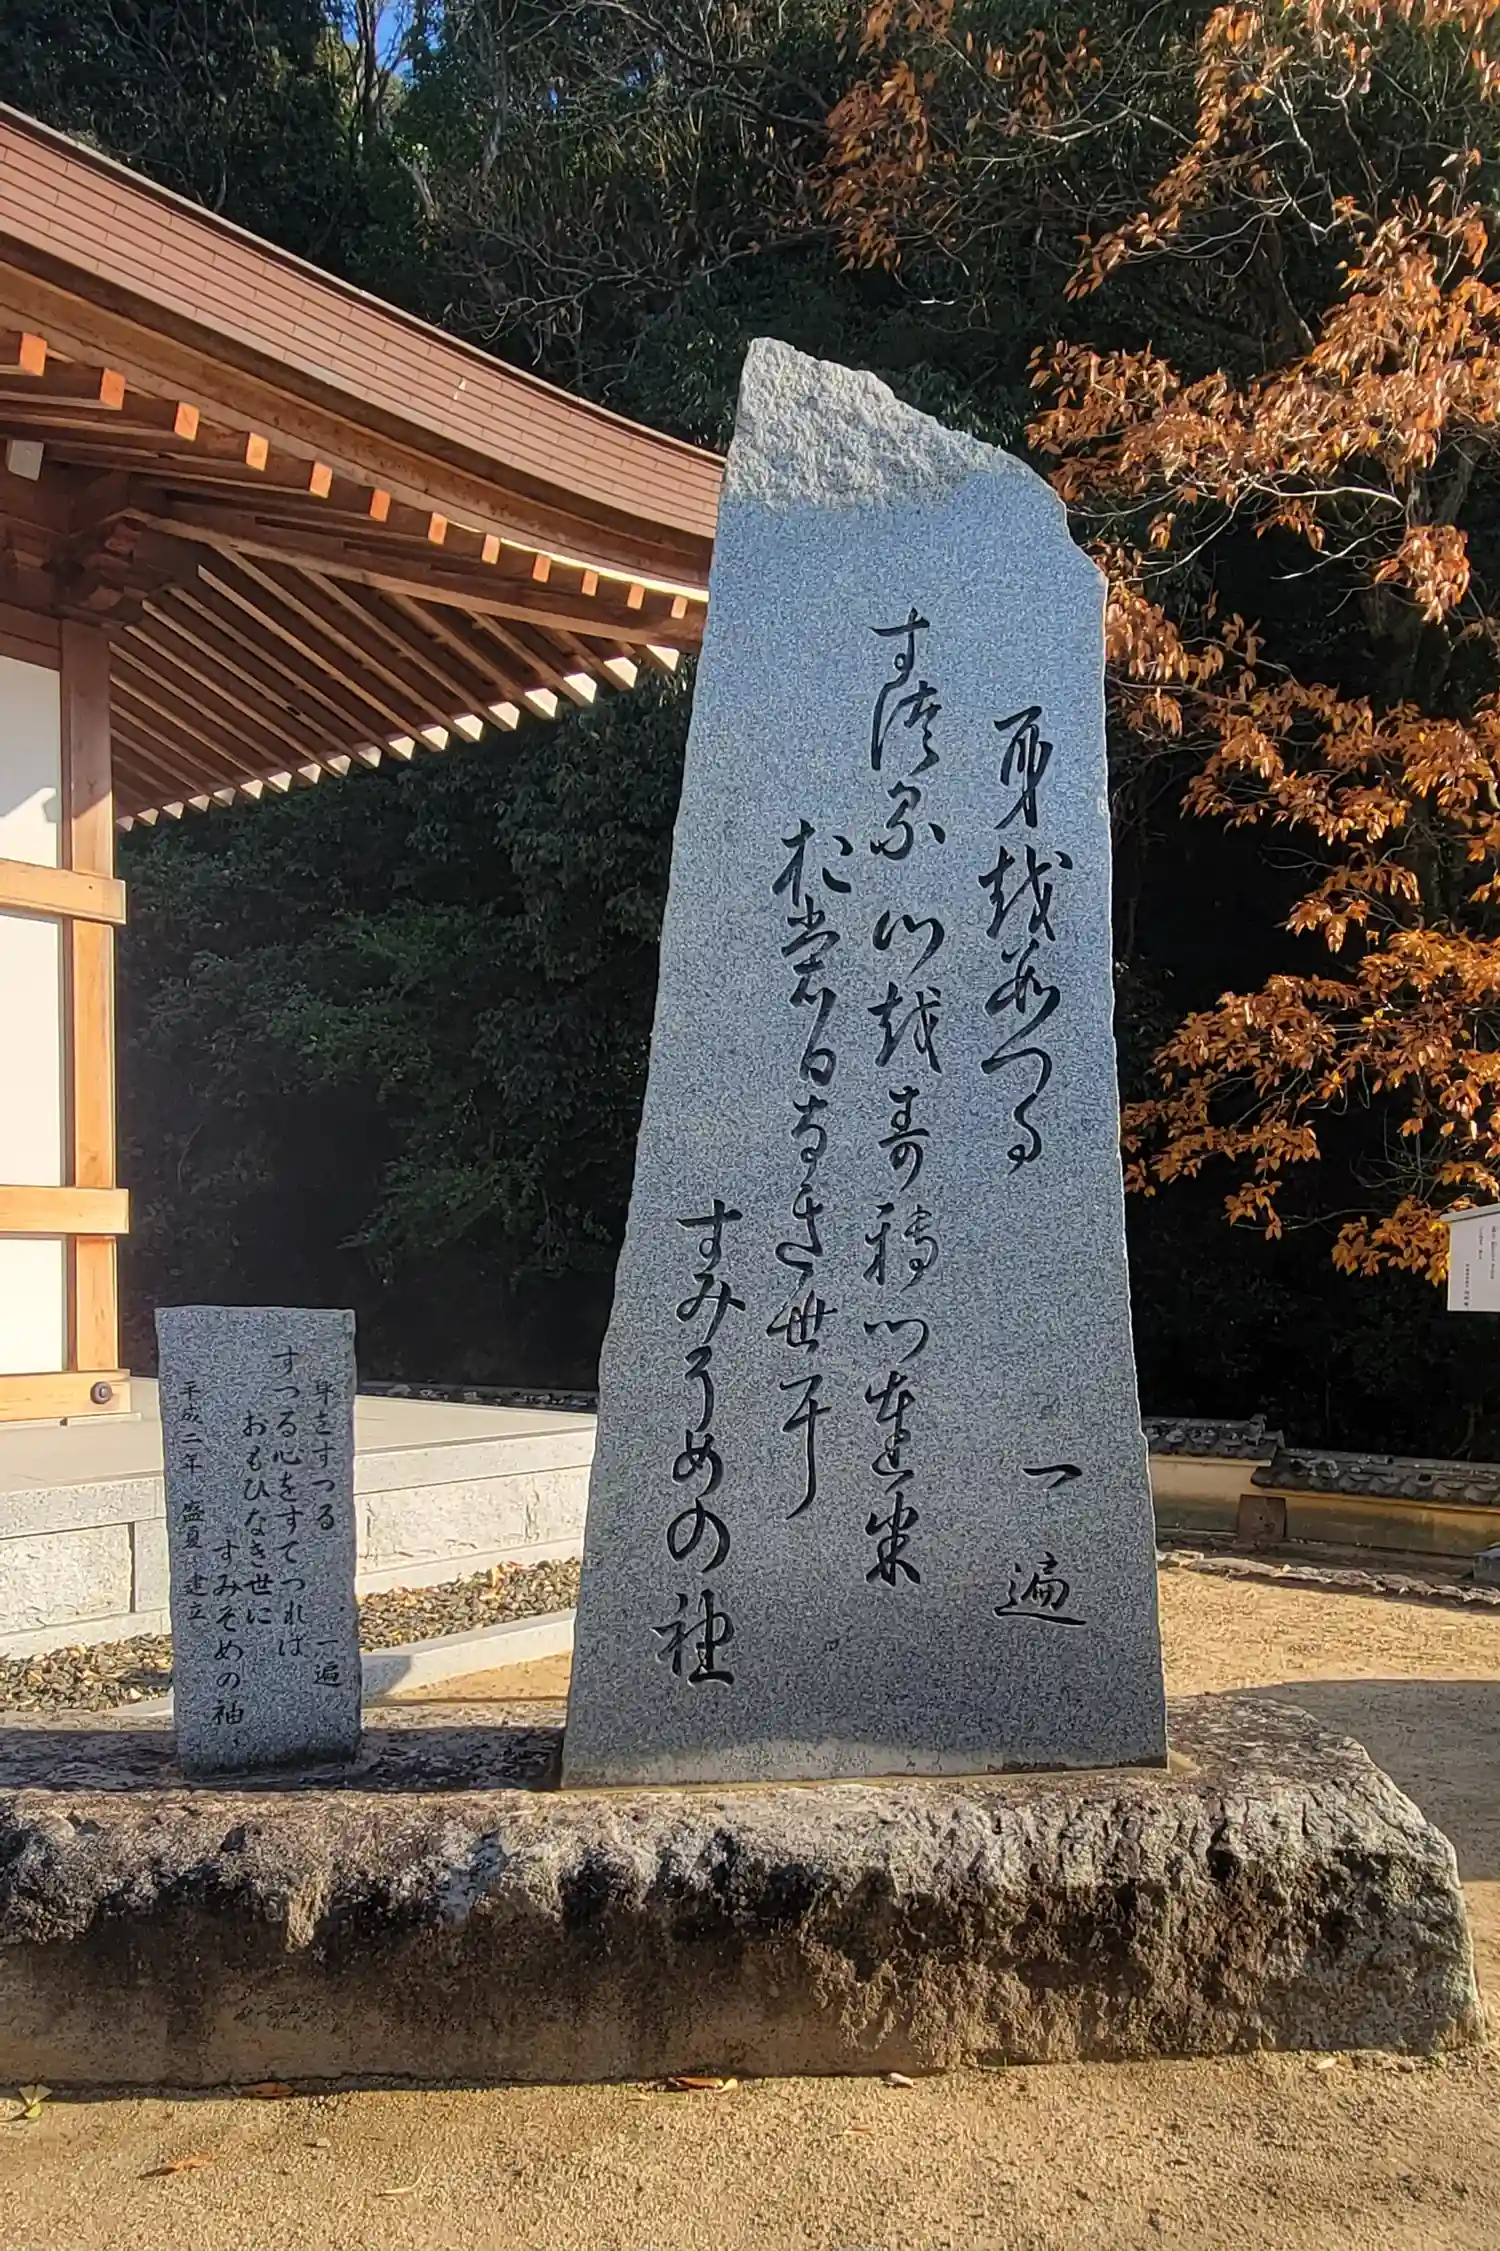 身越つる 一遍
す徒る心越寿轉川連
於裳日なき世耳
すみそめの袖
身をすつる 一遍
すつる心をすてつれば
おもひなき世に
すみそめの袖
平成二年 盛夏 建立